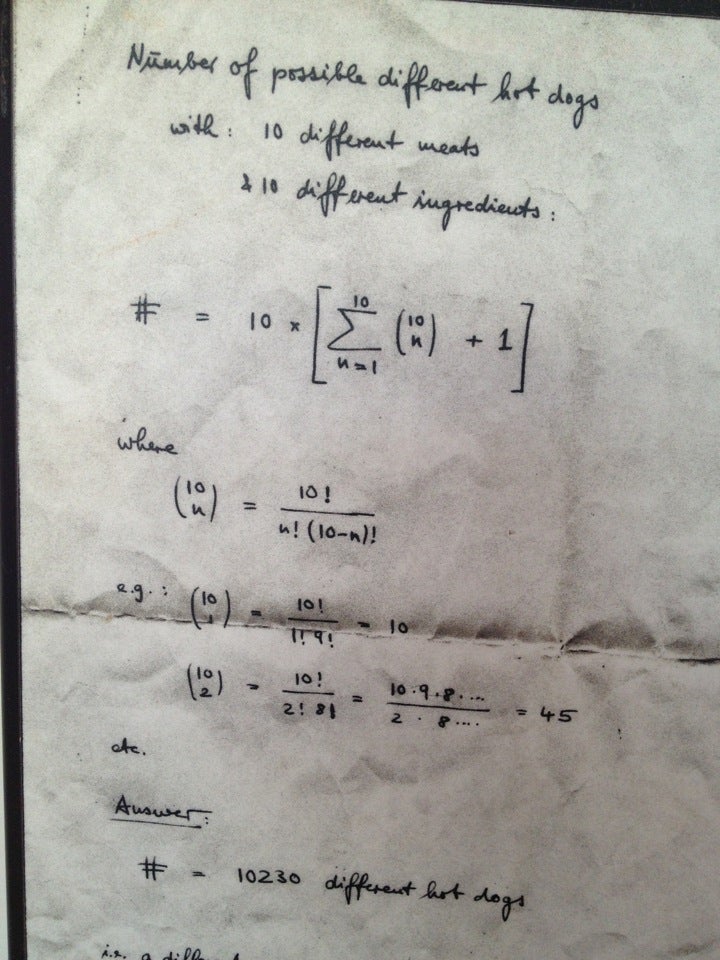 Number of possible different hot dogs
with: 10 different meats
& 10 different ingredients:
# = 10 × [ 10 ∑ n=1 (10 n) + 1 ]
where
(10 n) = 10! / n! (10-n)!
e.g.: (10 1) = 10! / 1! 9! = 10
(10 2) = 10! / 2! 8! = 10·9·8.... / 2 · 8.... = 45
etc.
Answer:
# = 10230 different hot dogs
i.e. a